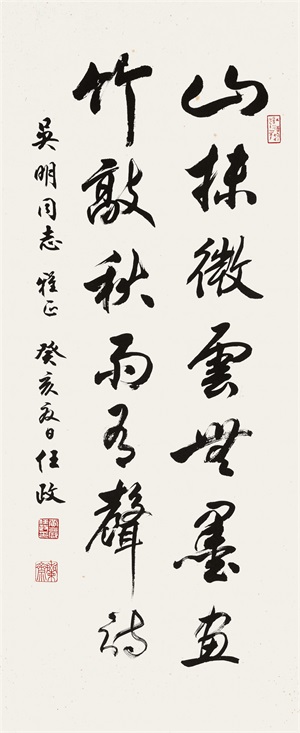 山抹微雲無墨畫
竹敲秋雨有聲詩
吳明同志雅正 癸亥夏日任政